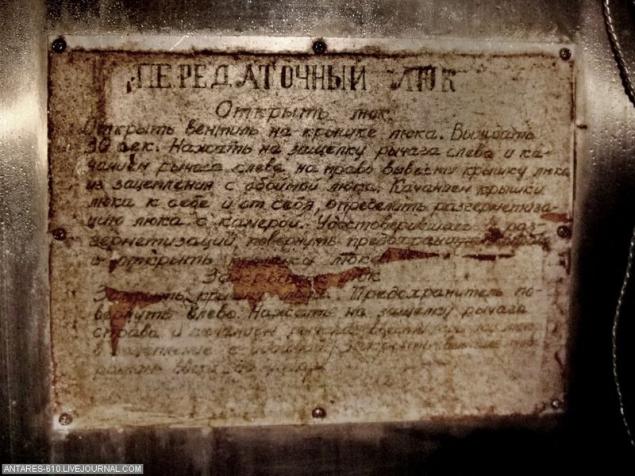 ПЕРЕДАТОЧНЫЙ ЛЮК
Открыть люк.
Открыть вентиль на крышке люка. Выждать
30 сек. Нажать на защелку рычага слева и ка-
чанием рычага слева на право вывести крышку люка
из зацепления с обоймой люка. Качанием крышки
люка к себе и от себя, определить разгерметиза-
цию люка с камерой. Удостоверившись в раз-
герметизации, повернуть
и открыть крышку люка.
люк
Закрыть крышку люка. Предохранитель по-
вернуть влево. Нажать на защелку рычага
справа и качанием
в зацепление с обоймой
ANTARES-610.LIVEJOURNAL.COM